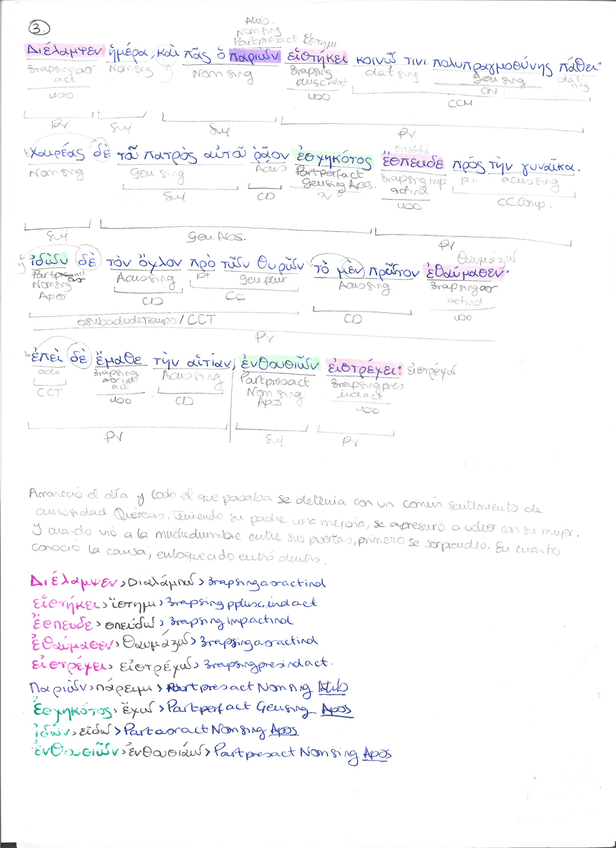 3.
Atrib.
Nom sing
Part pres act ἵστημι
Διέλαμψεν ἡμέρα, καὶ πᾶς ὁ παριὼν εἱστήκει κοινῷ τινι πολυπραγμοσύνης πάθει·
3ra p sing ao act Nom sing Nom sing 3ra p sing plusc ind act dat sing Gen sing dat sing
UOO UOO CN
CCM
PV Suj Suj PV
Χαιρέας δὲ τοῦ πατρὸς αὐτοῦ ῥᾷον ἐσχηκότος ἔσπευδε πρὸς τὴν γυναῖκα.
Nom sing Gen sing Acus Part perfact Gen sing Apos. 3ra p sing imp act ind P+ acus sing
CD UOO CC Comp.
Suj Gen Abs. PV
θαυμάζω
ἰδὼν δὲ τὸν ὄχλον πρὸ τῶν θυρῶν τὸ μὲν πρῶτον ἐθαύμασεν·
Part ao act Nom sing Apos Acus sing P+ Gen plur Acus sing 3ra p sing ao act ind
CD CC CD UOO
/ CCT
PV
ἐπεὶ δὲ ἔμαθε τὴν αἰτίαν, ἐνθουσιῶν εἰστρέχει· εἰστρέχω
adv 3ra p sing ao ind act Acus sing Part pres act Nom sing Apos 3ra p sing pres ind act
CCT UOO CD UOO
PV Suj PV
Amaneció el día y todo el que pasaba se detenía con un común sentimiento de
curiosidad. Quéreas, teniendo su padre una mejoría, se apresuró a volver con su mujer.
Y cuando vio a la muchedumbre entre sus puertas, primero se sorprendió. En cuanto
conoció la causa, enloquecido entró dentro.
Διέλαμψεν > Διαλάμπω > 3ra p sing ao act ind
εἱστήκει > ἵστημι > 3ra p sing pplusc ind act
ἔσπευδε > σπεύδω > 3ra p sing imp act ind
ἐθαύμασεν > θαυμάζω > 3ra p sing ao act ind
εἰστρέχει > εἰστρέχω > 3ra p sing pres ind act.
Παριὼν > πάρειμι > Part pres act Nom sing Atrib
ἐσχηκότος > ἔχω > Part perf act Gen sing Apos
ἰδὼν > εἴδω > Part ao act Nom sing Apos
ἐνθουσιῶν > ἐνθουσιάω > Part pres act Nom sing Apos